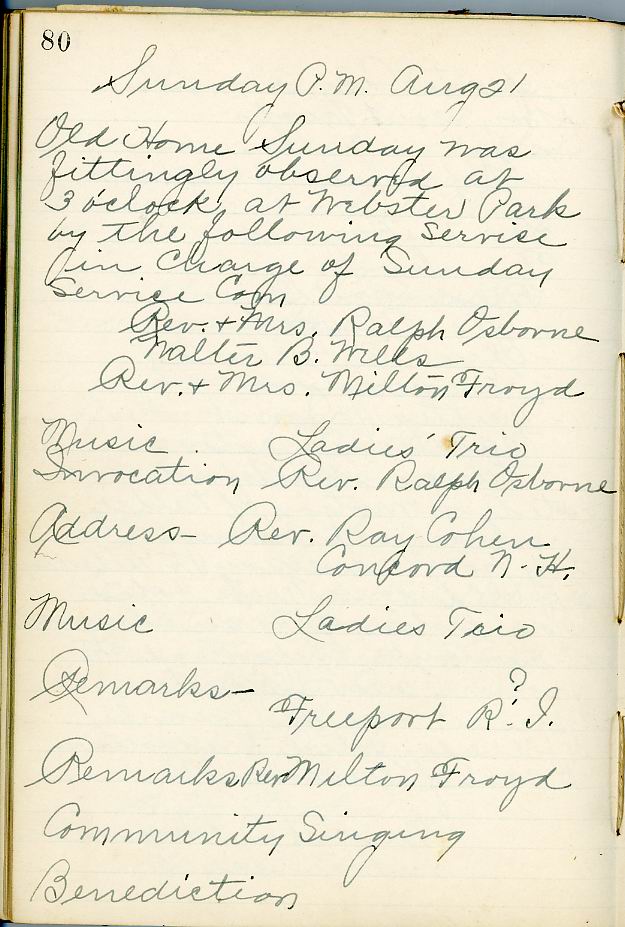 80
Sunday P.M. Aug 21
Old Home Sunday was
fittingly observed at
3 o'clock, at Webster Park
by the following servise
in charge of Sunday
Service Com
Rev. + Mrs. Ralph Osborne
Walter B. Wells
Rev. + Mrs. Milton Froyd
Music Ladies' Trio
Invocation Rev. Ralph Osborne
Address - Rev. Ray Cohen
Concord N. H.
Music Ladies Trio
Remarks - ?
Freeport R. I.
Remarks Rev Milton Froyd
Community Singing
Benediction